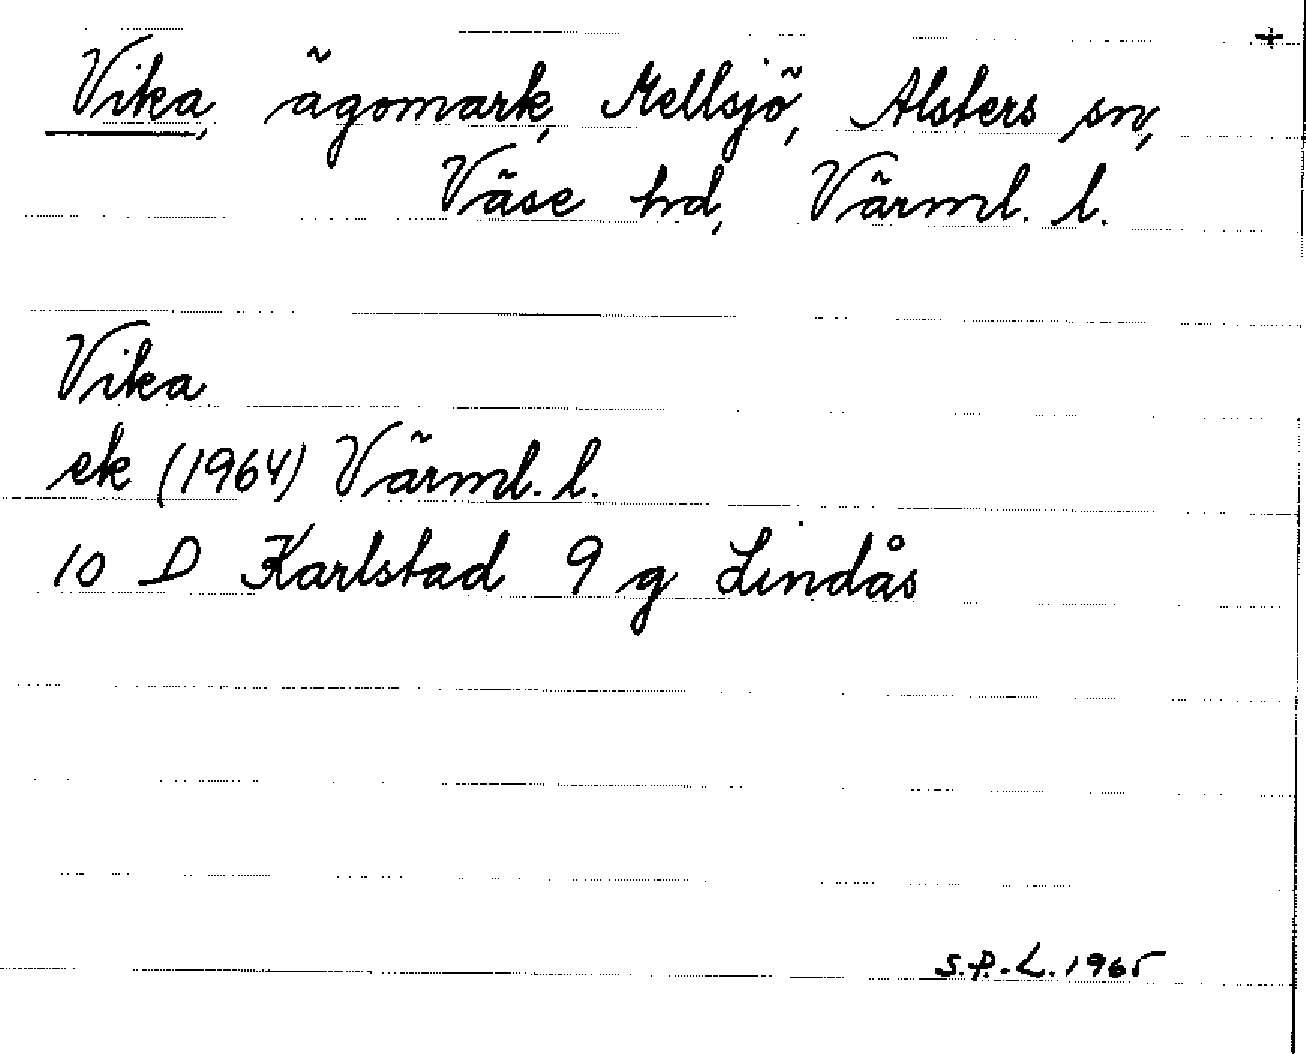 +
Vika, ägomark, Mellsjö, Alsters sn,
Väse hd, Värml. l.
Vika
ek (1964) Värml. l.
10 D Karlstad 9 g Lindås
S.P.-L. 1965